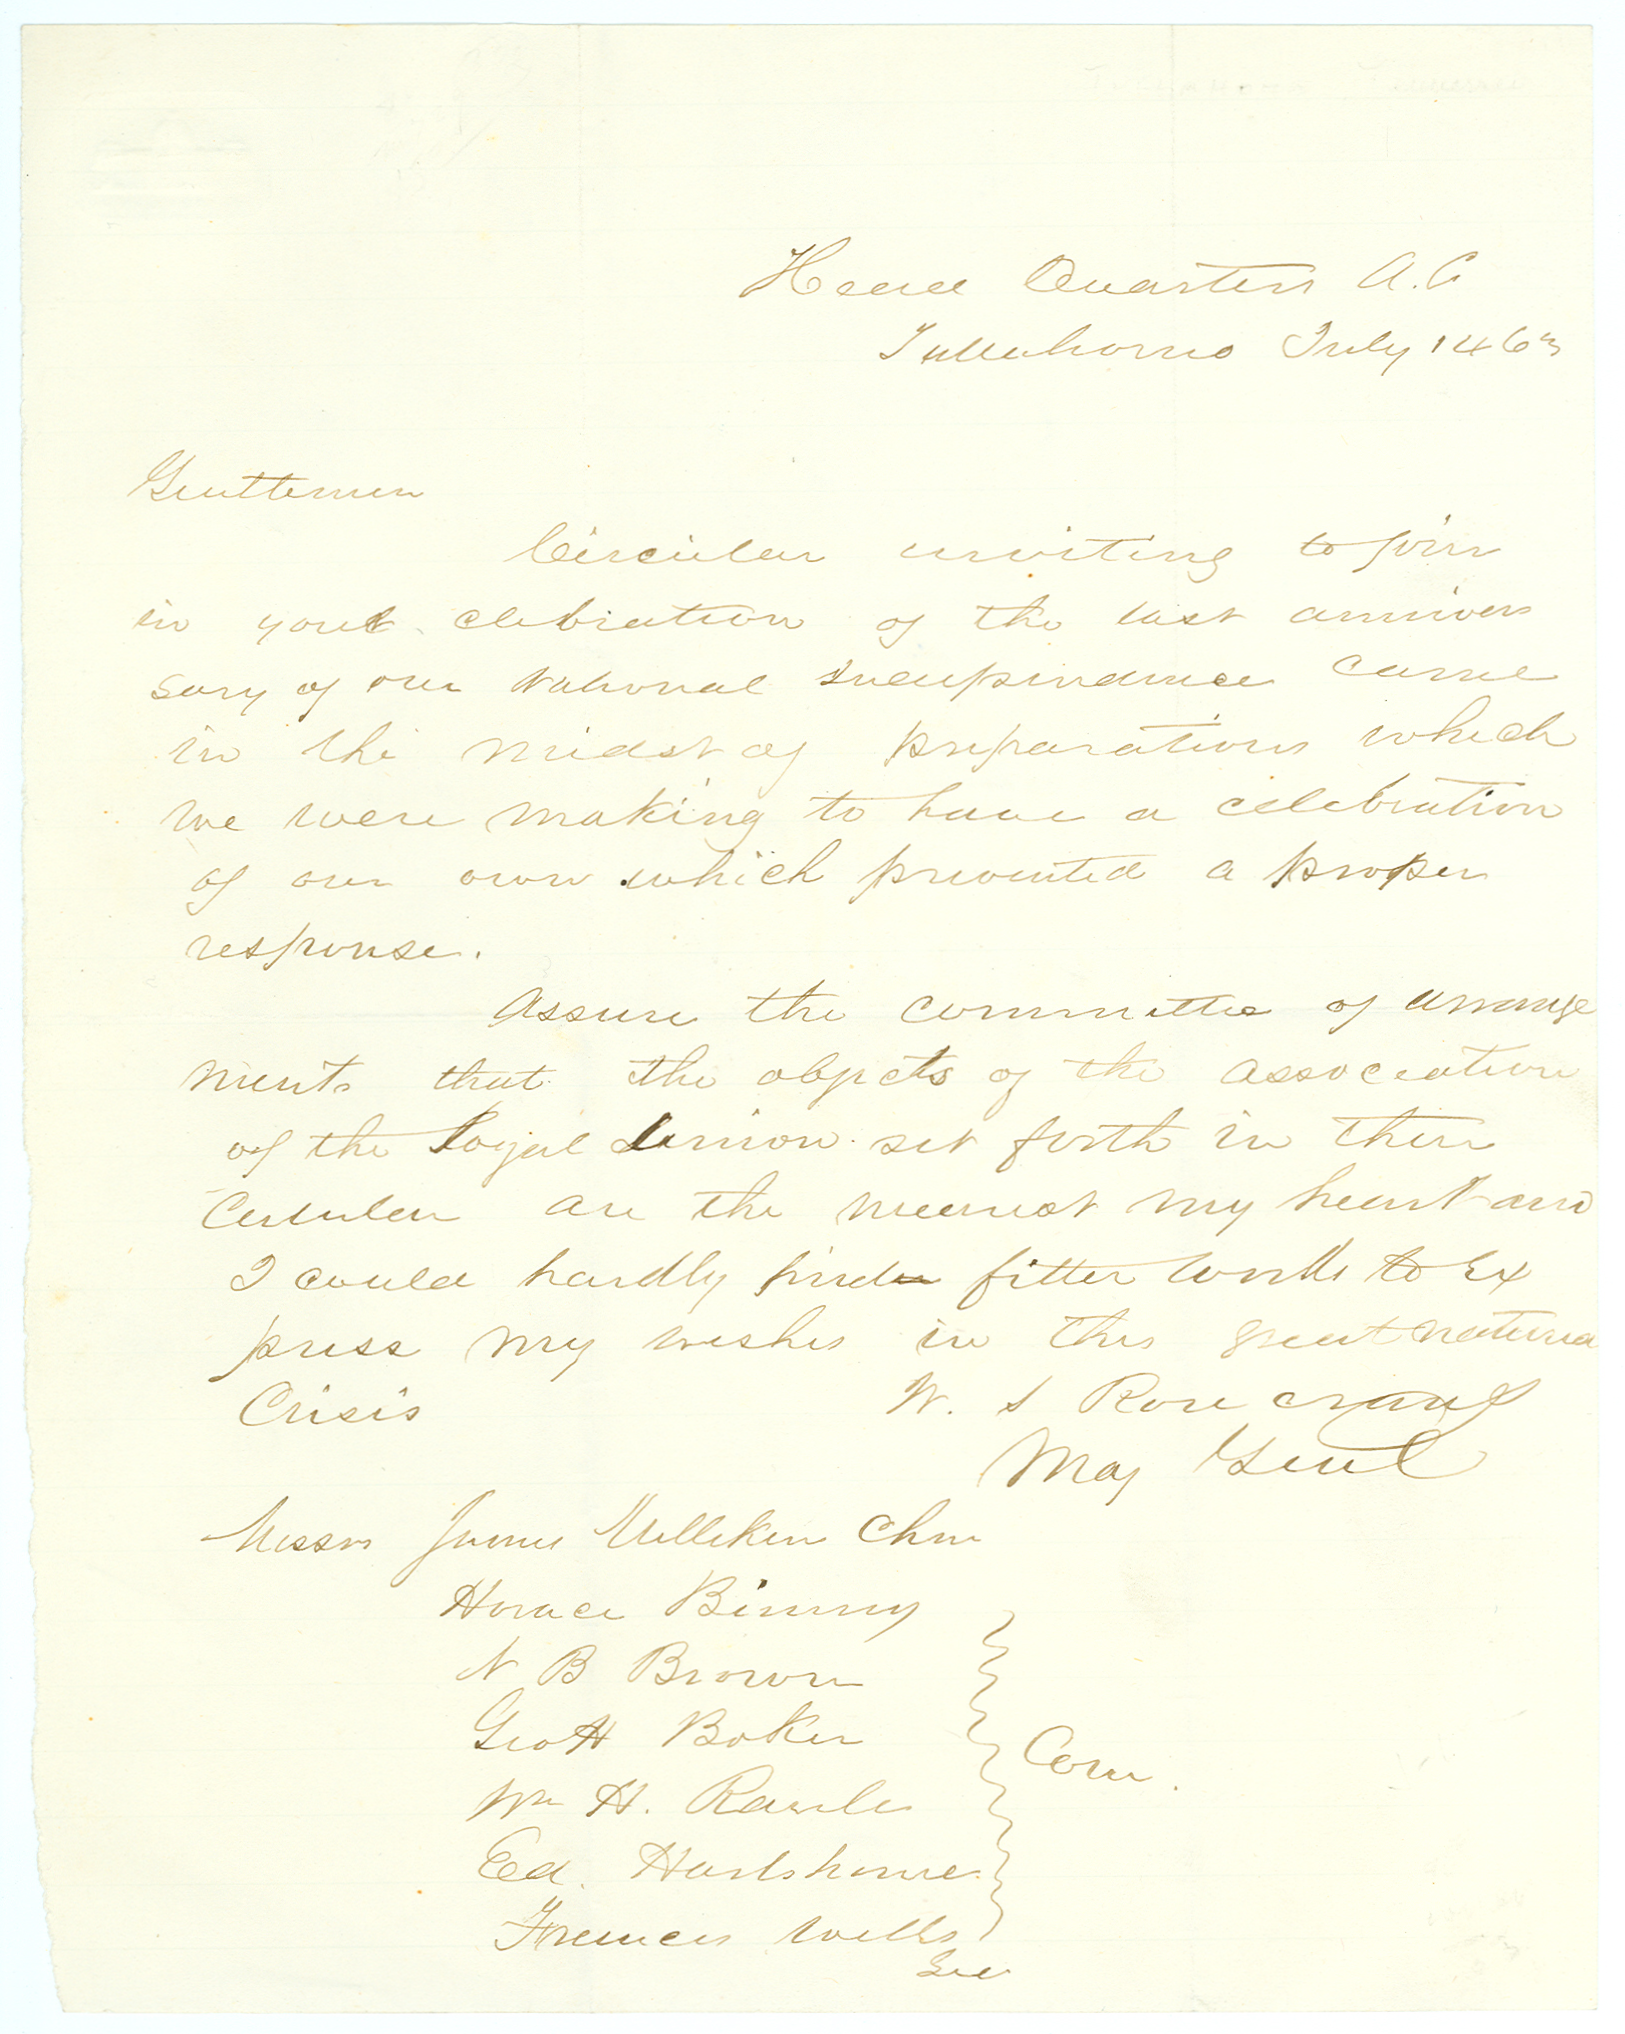 Head Quarters A. C
Tullahoma July 14 63
Gentlemen
Circular inviting to join
in your celebration of the last anniver
sary of our National Independence came
in the midst of preparations which
we were making to have a celebration
of our own which prevented a proper
response.
Assure the committee of arrange
ments that the objects of the association
of the Loyal Union set forth in their
Circular are the nearest my heart and
I could hardly find fitter words to ex
press my wishes in this great national
Crisis
W. S Rosecrans
Maj Genl
Messrs James Milliken Chm
Horace Binney
N B Brown
Geo H Boker
Wm H. Rawle
Ed. Hartshorne
Com.
Francis Wells
Sec